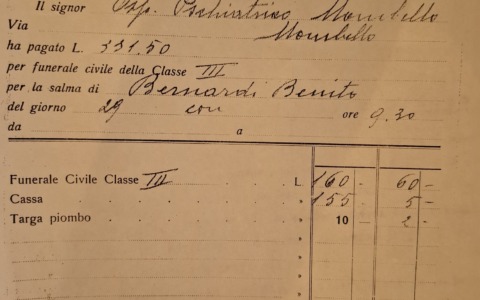 Il signor Osp. Pschiatrico Mombello
Via Mombello
ha pagato L. 331.50
per funerale civile della Classe III
per la salma di Bernardi Benito
del giorno 29 corr ore 9.30
da a
Funerale Civile Classe III L. 160 - 60 -
Cassa " 155 5 -
Targa piombo " 10 - 2 -
"
"
"